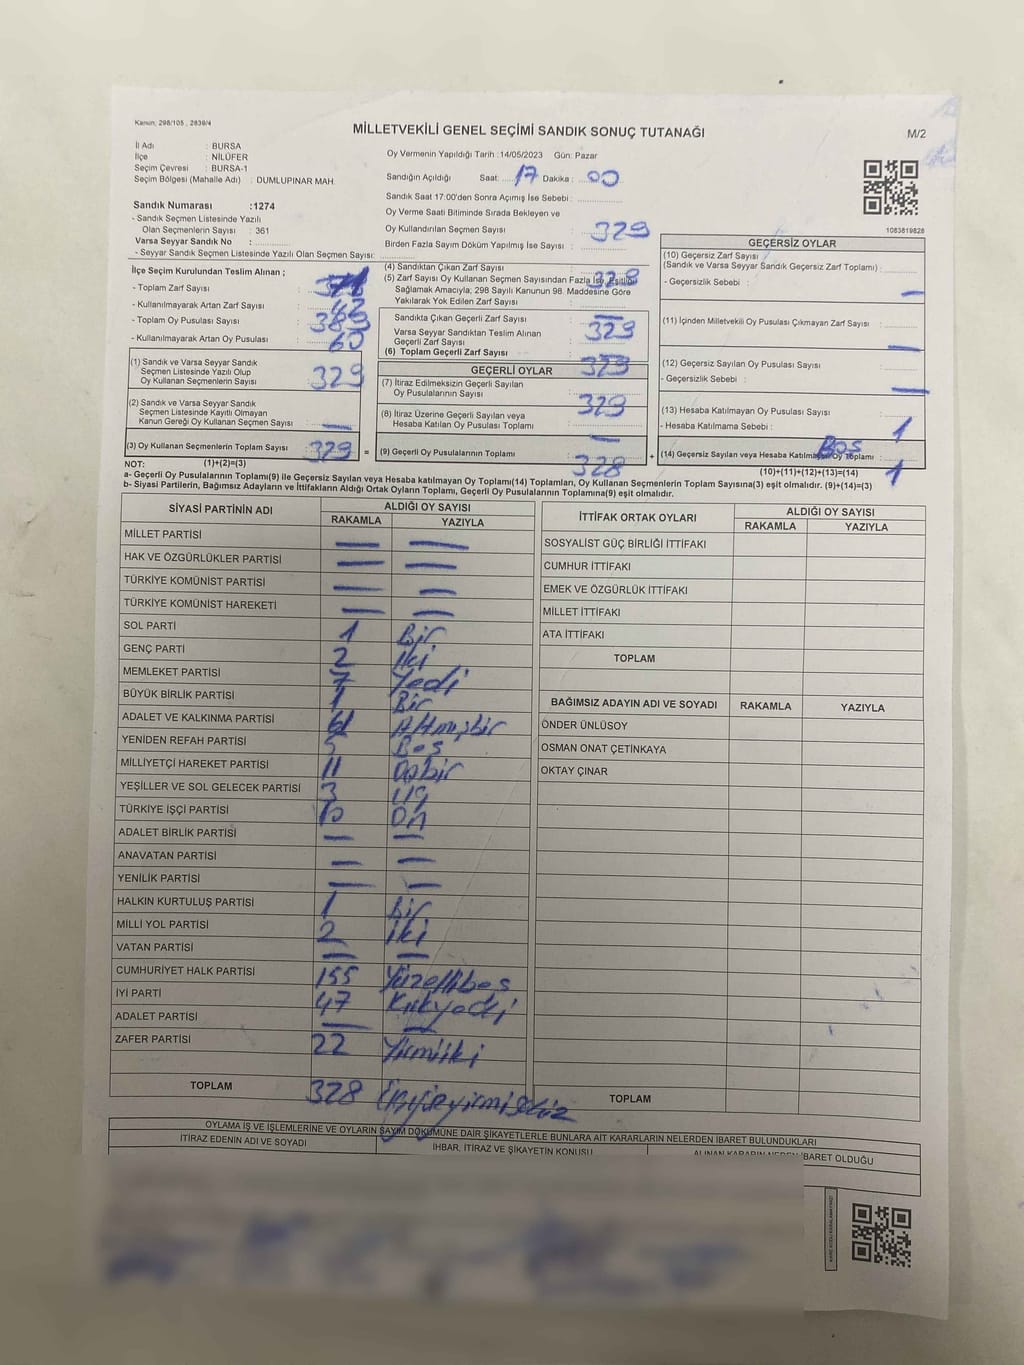 Kanun, 298/105, 2839/4
MİLLETVEKİLİ GENEL SEÇİMİ SANDIK SONUÇ TUTANAĞI
M/2
İl Adı : BURSA
İlçe : NİLÜFER
Seçim Çevresi : BURSA-1
Seçim Bölgesi (Mahalle Adı) : DUMLUPINAR MAH.
Sandık Numarası :1274
- Sandık Seçmen Listesinde Yazılı
Olan Seçmenlerin Sayısı : 361
Varsa Seyyar Sandık No :
- Seyyar Sandık Seçmen Listesinde Yazılı Olan Seçmen Sayısı:
Oy Vermenin Yapıldığı Tarih :14/05/2023 Gün: Pazar
Sandığın Açıldığı Saat: 17 Dakika : 00
Sandık Saat 17:00'den Sonra Açımış İse Sebebi :
Oy Verme Saati Bitiminde Sırada Bekleyen ve
Oy Kullandırılan Seçmen Sayısı : 329
Birden Fazla Sayım Döküm Yapılmış İse Sayısı :
1083819828
İlçe Seçim Kurulundan Teslim Alınan ;
- Toplam Zarf Sayısı :
- Kullanılmayarak Artan Zarf Sayısı : 42
- Toplam Oy Pusulası Sayısı : 389
- Kullanılmayarak Artan Oy Pusulası : 60
(1) Sandık ve Varsa Seyyar Sandık
Seçmen Listesinde Yazılı Olup
Oy Kullanan Seçmenlerin Sayısı 329
(2) Sandık ve Varsa Seyyar Sandık
Seçmen Listesinde Kayıtlı Olmayan
Kanun Gereği Oy Kullanan Seçmen Sayısı —
(3) Oy Kullanan Seçmenlerin Toplam Sayısı 329 =
(1)+(2)=(3)
(4) Sandıktan Çıkan Zarf Sayısı : 329
(5) Zarf Sayısı Oy Kullanan Seçmen Sayısından Fazla İse, Eşitliği
Sağlamak Amacıyla; 298 Sayılı Kanunun 98. Maddesine Göre
Yakılarak Yok Edilen Zarf Sayısı : —
Sandıkta Çıkan Geçerli Zarf Sayısı : 329
Varsa Seyyar Sandıktan Teslim Alınan
Geçerli Zarf Sayısı : —
(6) Toplam Geçerli Zarf Sayısı : 329
GEÇERLİ OYLAR
(7) İtiraz Edilmeksizin Geçerli Sayılan
Oy Pusulalarının Sayısı : 329
(8) İtiraz Üzerine Geçerli Sayılan veya
Hesaba Katılan Oy Pusulası Toplamı : —
(9) Geçerli Oy Pusulalarının Toplamı 328 +
GEÇERSİZ OYLAR
(10) Geçersiz Zarf Sayısı
(Sandık ve Varsa Seyyar Sandık Geçersiz Zarf Toplamı) :
- Geçersizlik Sebebi : —
(11) İçinden Milletvekili Oy Pusulası Çıkmayan Zarf Sayısı : —
(12) Geçersiz Sayılan Oy Pusulası Sayısı :
- Geçersizlik Sebebi : —
(13) Hesaba Katılmayan Oy Pusulası Sayısı : 1
- Hesaba Katılmama Sebebi : Boş
(14) Geçersiz Sayılan veya Hesaba Katılmayan Oy Toplamı : 1
(10)+(11)+(12)+(13)=(14)
NOT:
a- Geçerli Oy Pusulaları Toplamı(9) ile Geçersiz Sayılan veya Hesaba katılmayan Oy Toplamı(14) Toplamları, Oy Kullanan Seçmenlerin Toplam Sayısına(3) eşit olmalıdır. (9)+(14)=(3)
b- Siyasi Partilerin, Bağımsız Adayların ve İttifakların Aldığı Ortak Oyların Toplamı, Geçerli Oy Pusulalarının Toplamına(9) eşit olmalıdır.
SİYASİ PARTİNİN ADI ALDIĞI OY SAYISI
RAKAMLA YAZIYLA
MİLLET PARTİSİ — —
HAK VE ÖZGÜRLÜKLER PARTİSİ — —
TÜRKİYE KOMÜNİST PARTİSİ — —
TÜRKİYE KOMÜNİST HAREKETİ — —
SOL PARTİ 1 Bir
GENÇ PARTİ 2 İki
MEMLEKET PARTİSİ 7 Yedi
BÜYÜK BİRLİK PARTİSİ 1 Bir
ADALET VE KALKINMA PARTİSİ 61 Altmışbir
YENİDEN REFAH PARTİSİ 5 Beş
MİLLİYETÇİ HAREKET PARTİSİ 11 Onbir
YEŞİLLER VE SOL GELECEK PARTİSİ 3 Üç
TÜRKİYE İŞÇİ PARTİSİ 10 On
ADALET BİRLİK PARTİSİ — —
ANAVATAN PARTİSİ — —
YENİLİK PARTİSİ — —
HALKIN KURTULUŞ PARTİSİ 1 Bir
MİLLİ YOL PARTİSİ 2 İki
VATAN PARTİSİ — —
CUMHURİYET HALK PARTİSİ 155 Yüzellibeş
İYİ PARTİ 47 Kırkyedi
ADALET PARTİSİ — —
ZAFER PARTİSİ 22 Yirmiiki
TOPLAM 328 Üçyüzyirmisekiz
İTTİFAK ORTAK OYLARI ALDIĞI OY SAYISI
RAKAMLA YAZIYLA
SOSYALİST GÜÇ BİRLİĞİ İTTİFAKI
CUMHUR İTTİFAKI
EMEK VE ÖZGÜRLÜK İTTİFAKI
MİLLET İTTİFAKI
ATA İTTİFAKI
TOPLAM
BAĞIMSIZ ADAYIN ADI VE SOYADI RAKAMLA YAZIYLA
ÖNDER ÜNLÜSOY
OSMAN ONAT ÇETİNKAYA
OKTAY ÇINAR
TOPLAM
OYLAMA İŞ VE İŞLEMLERİNE VE OYLARIN SAYIM DÖKÜMÜNE DAİR ŞİKAYETLERLE BUNLARA AİT KARARLARIN NELERDEN İBARET BULUNDUKLARI
İTİRAZ EDENİN ADI VE SOYADI İHBAR, İTİRAZ VE ŞİKAYETİN KONUSU ALINAN KARARIN NEDEN İBARET OLDUĞU